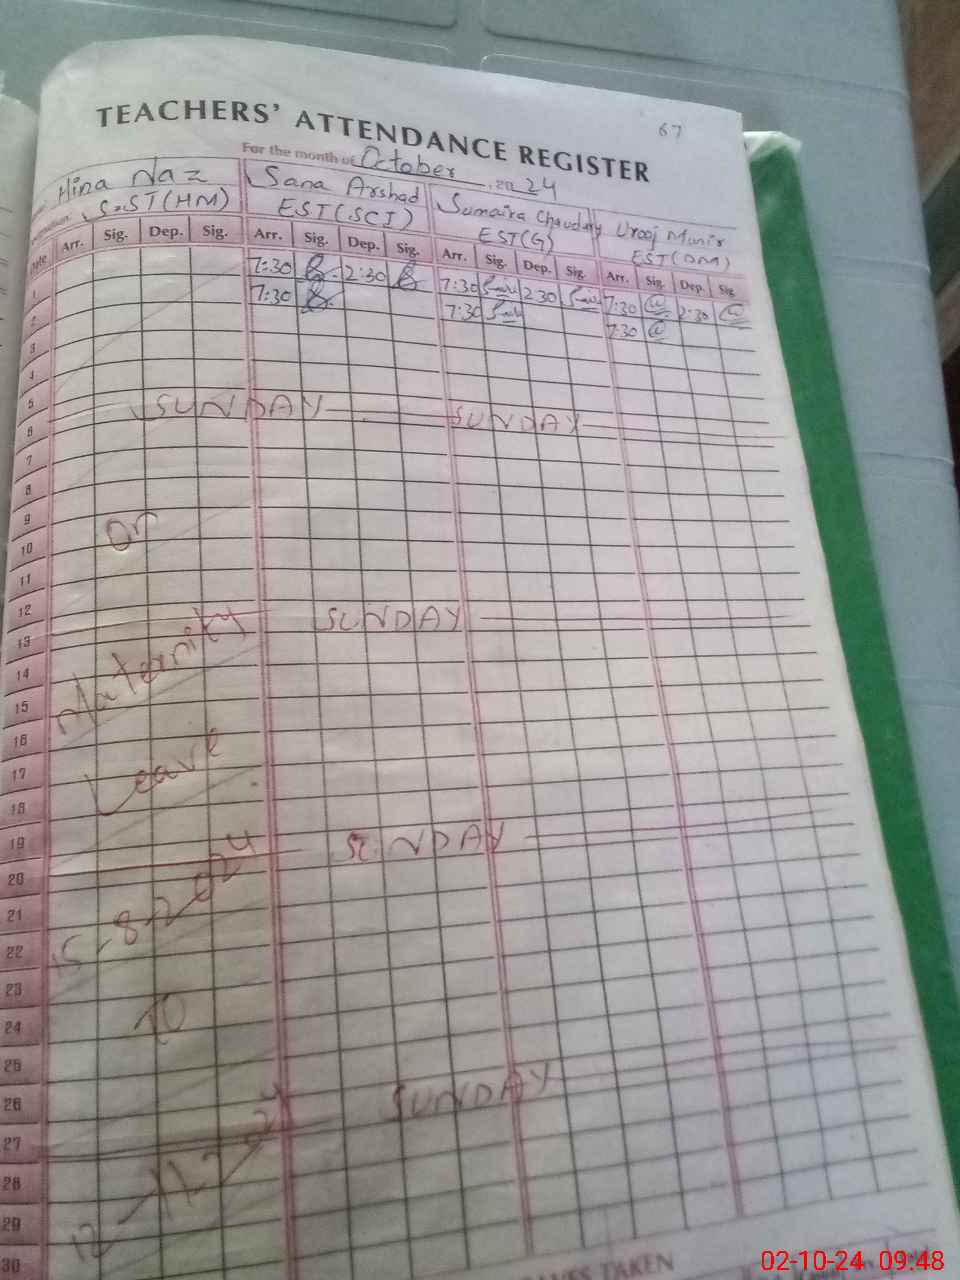 67
TEACHERS' ATTENDANCE REGISTER
For the month of October 2024
Hina Naz Sana Arshad Sumaira Chaudary Urooj Munir
S.ST(HM) EST(SCI) EST(G) EST(DM)
Date Arr. Sig. Dep. Sig. Arr. Sig. Dep. Sig. Arr. Sig. Dep. Sig. Arr. Sig. Dep. Sig
1 7:30 2:30 7:30 2:30 7:30 2:30
2 7:30 7:30 7:30
3
4
5
6 SUNDAY SUNDAY
7
8
9
10 On
11
12
13 SUNDAY
14 Maternity
15
16
17 Leave
18
19
20 SUNDAY
21
22 15-8-2024
23
24 TO
25
26
27 SUNDAY
28
29 12-11-24
30
TAKEN
02-10-24 09:48